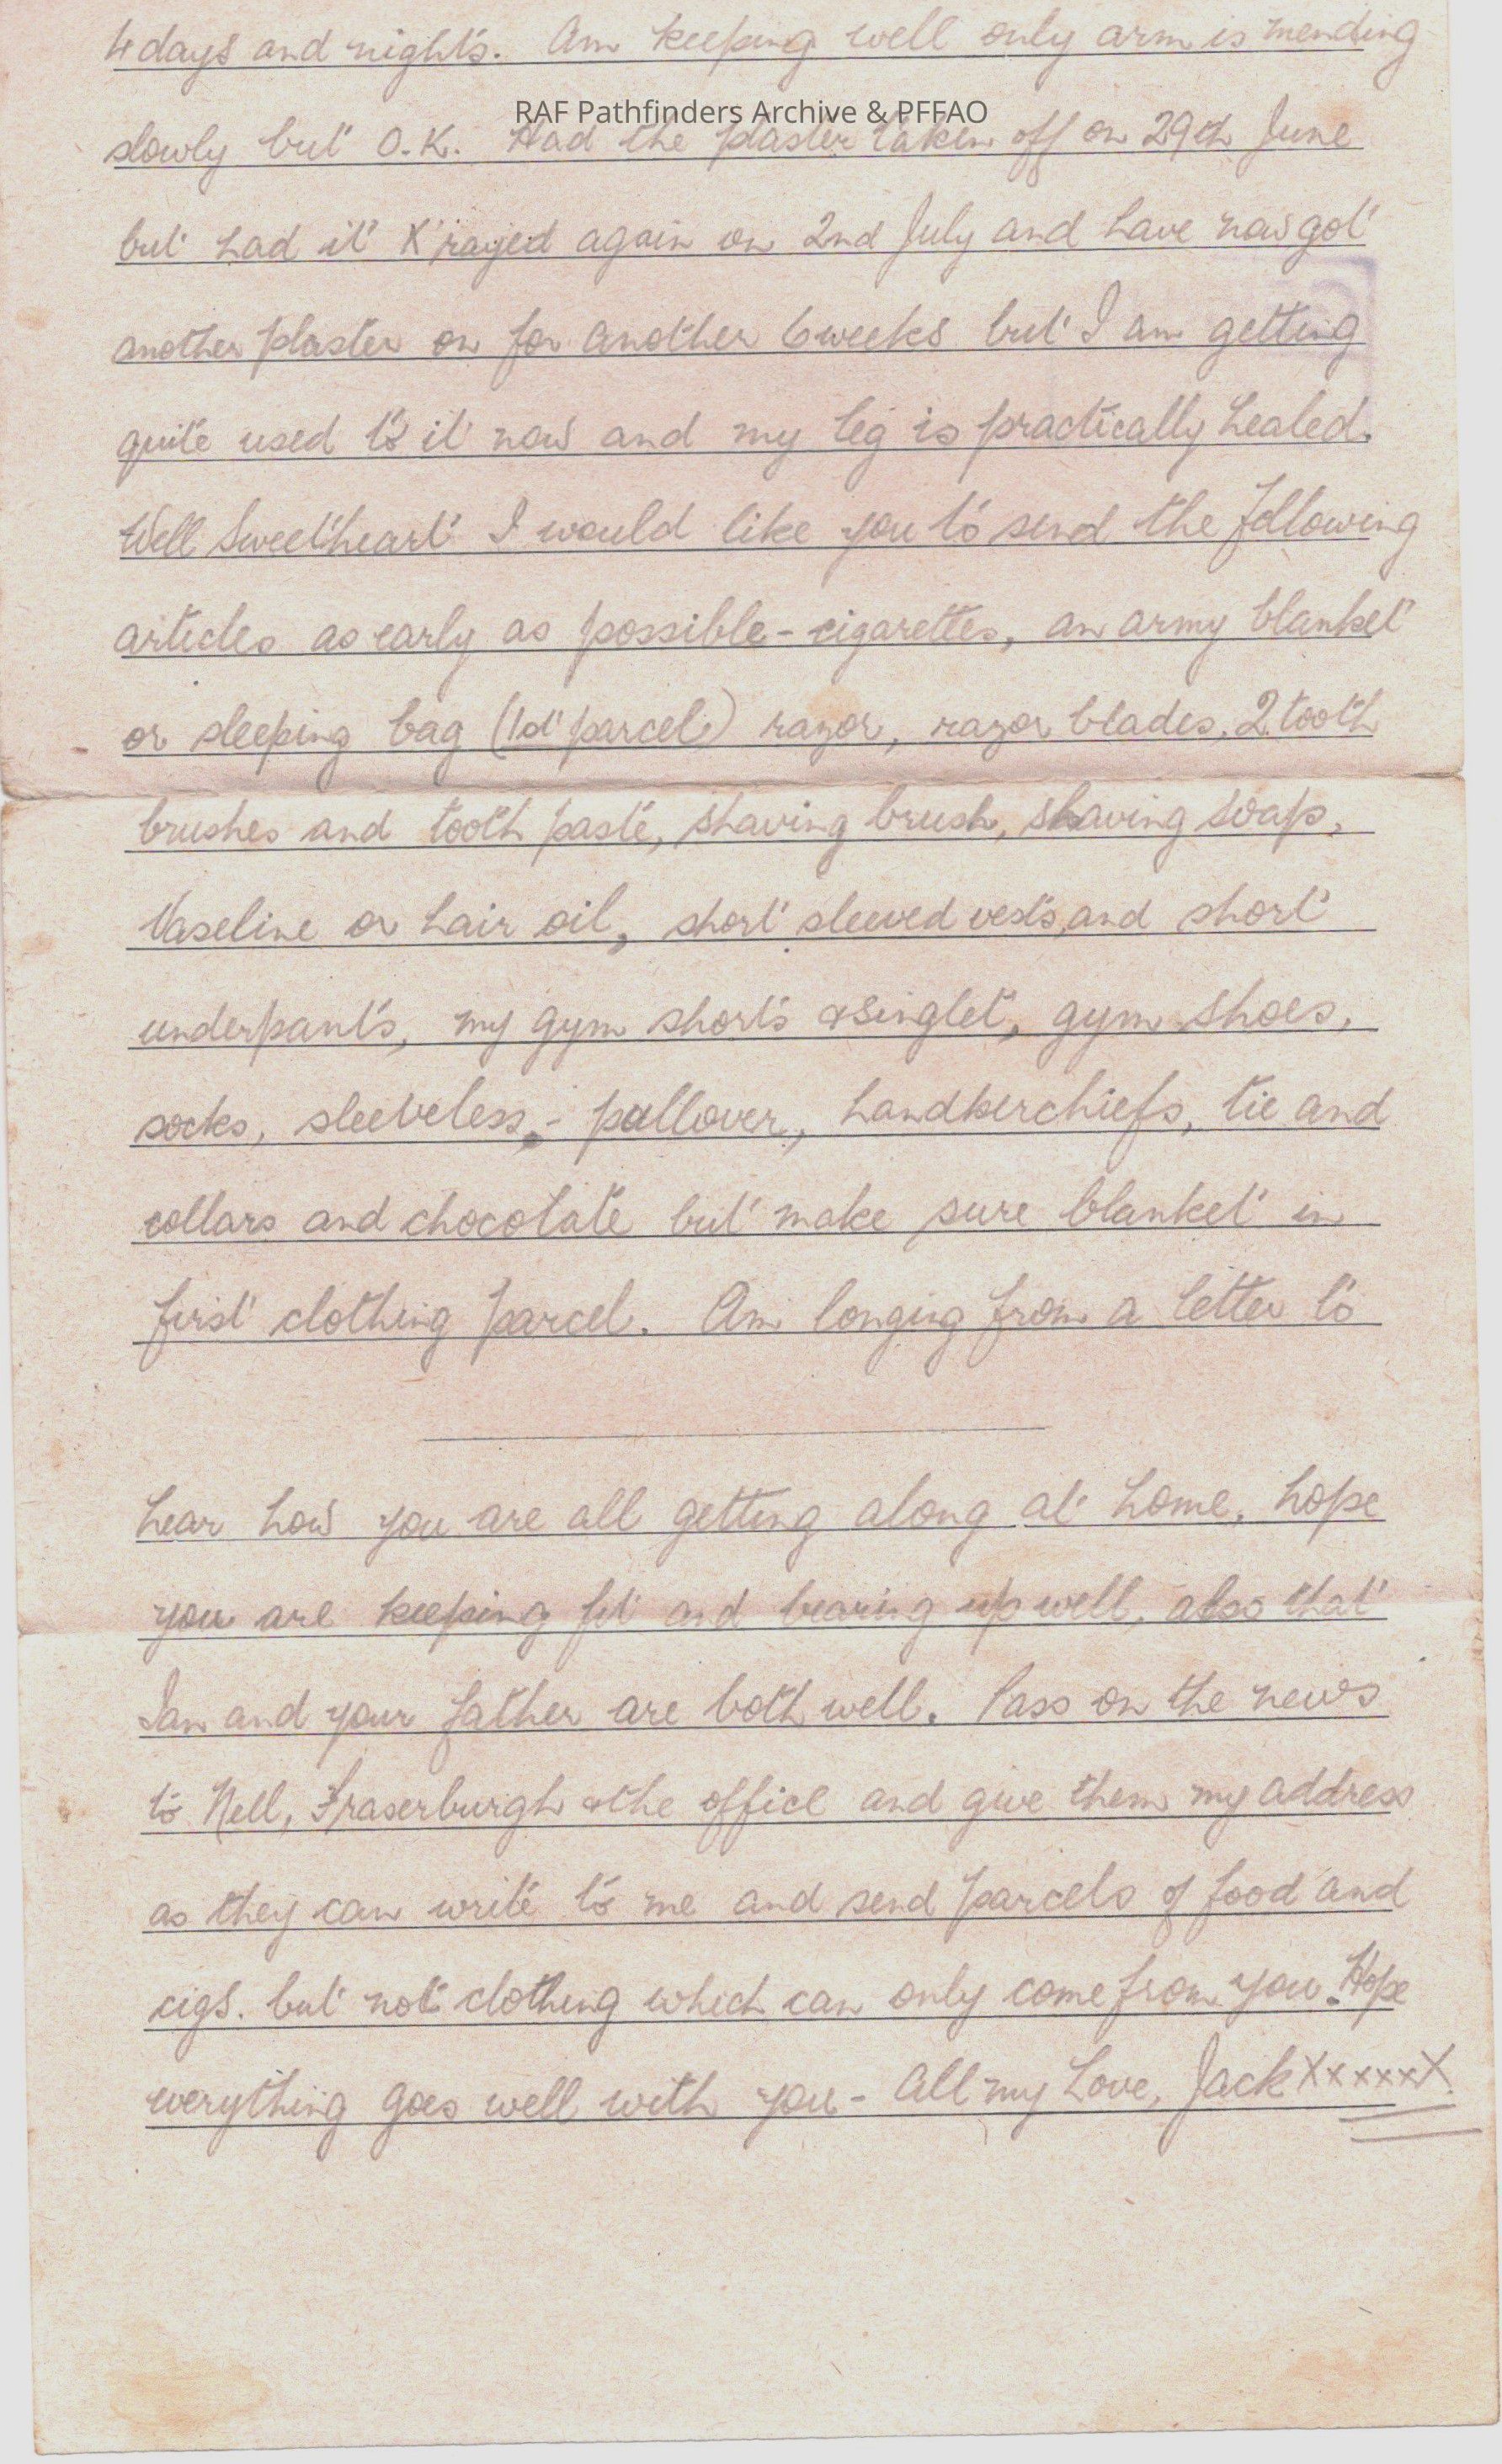 4 days and nights. Am keeping well only arm is mending
RAF Pathfinders Archive & PFFAO
slowly but O.K. Had the plaster taken off on 29th June
but had it X'rayed again on 2nd July and have now got
another plaster on for another 6 weeks but I am getting
quite used to it now and my leg is practically healed.
Well Sweetheart I would like you to send the following
articles as early as possible - cigarettes, an army blanket
or sleeping bag (1st parcel) razor, razor blades, 2 tooth
brushes and tooth paste, shaving brush, shaving soap,
Vaseline or hair oil, short sleeved vests, and short
underpants, my gym shorts & singlet, gym shoes,
socks, sleeveless, - pullover, handkerchiefs, tie and
collars and chocolate but make sure blanket in
first clothing parcel. Am longing from a letter to
hear how you are all getting along at home, hope
you are keeping fit and bearing up well, also that
Ian and your father are both well. Pass on the news
to Nell, Fraserburgh & the office and give them my address
as they can write to me and send parcels of food and
cigs. but not clothing which can only come from you. Hope
everything goes well with you - All my Love, Jack XxxxxX